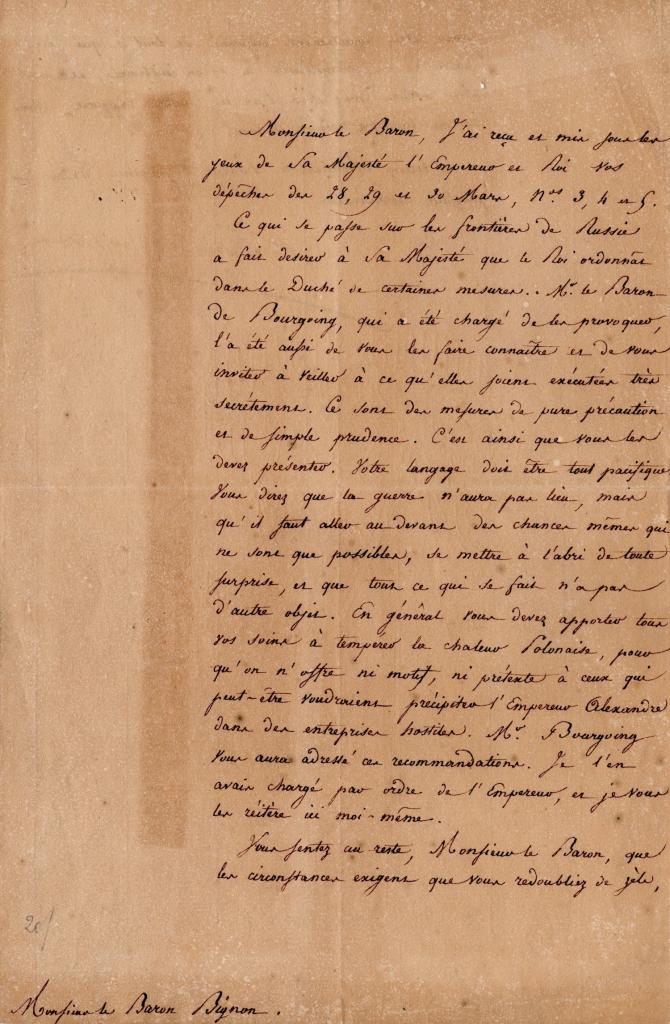 Monsieur le Baron, J'ai reçu et mis sous les
yeux de Sa Majesté l'Empereur et Roi vos
dépêches des 28, 29 et 30 Mars, Nos 3, 4 et 5.
Ce qui se passe sur les frontières de Russie
a fait desirer à Sa Majesté que le Roi ordonnât
dans le Duché de certaines mesures. Mr. le Baron
de Bourgoing, qui a été chargé de les provoquer,
l'a été aussi de vous les faire connaître et de vous
inviter à veiller à ce qu'elles soient exécutées très
secrétement. Ce sont des mesures de pure précaution
et de simple prudence. C'est ainsi que vous les
devez présenter. Votre langage doit être tout pacifique
Vous direz que la guerre n'aura pas lieu, mais
qu'il faut aller au devant des chances mêmes qui
ne sont que possibles, se mettre à l'abri de toute
surprise, et que tout ce qui se fait n'a pas
d'autre objet. En général vous devez apporter tous
vos soins à tempérer la chaleur Polonaise, pour
qu'on n'offre ni motif, ni prétexte à ceux qui
peut-être voudroient précipiter l'Empereur Alexandre
dans des entreprises hostiles. Mr. Bourgoing
vous aura adressé ces recommandations. Je l'en
avais chargé par ordre de l'Empereur, et je vous
les réitère ici moi-même.
Vous sentez au reste, Monsieur le Baron, que
les circonstances exigent que vous redoubliez de zèle,
20/
Monsieur le Baron Bignon.